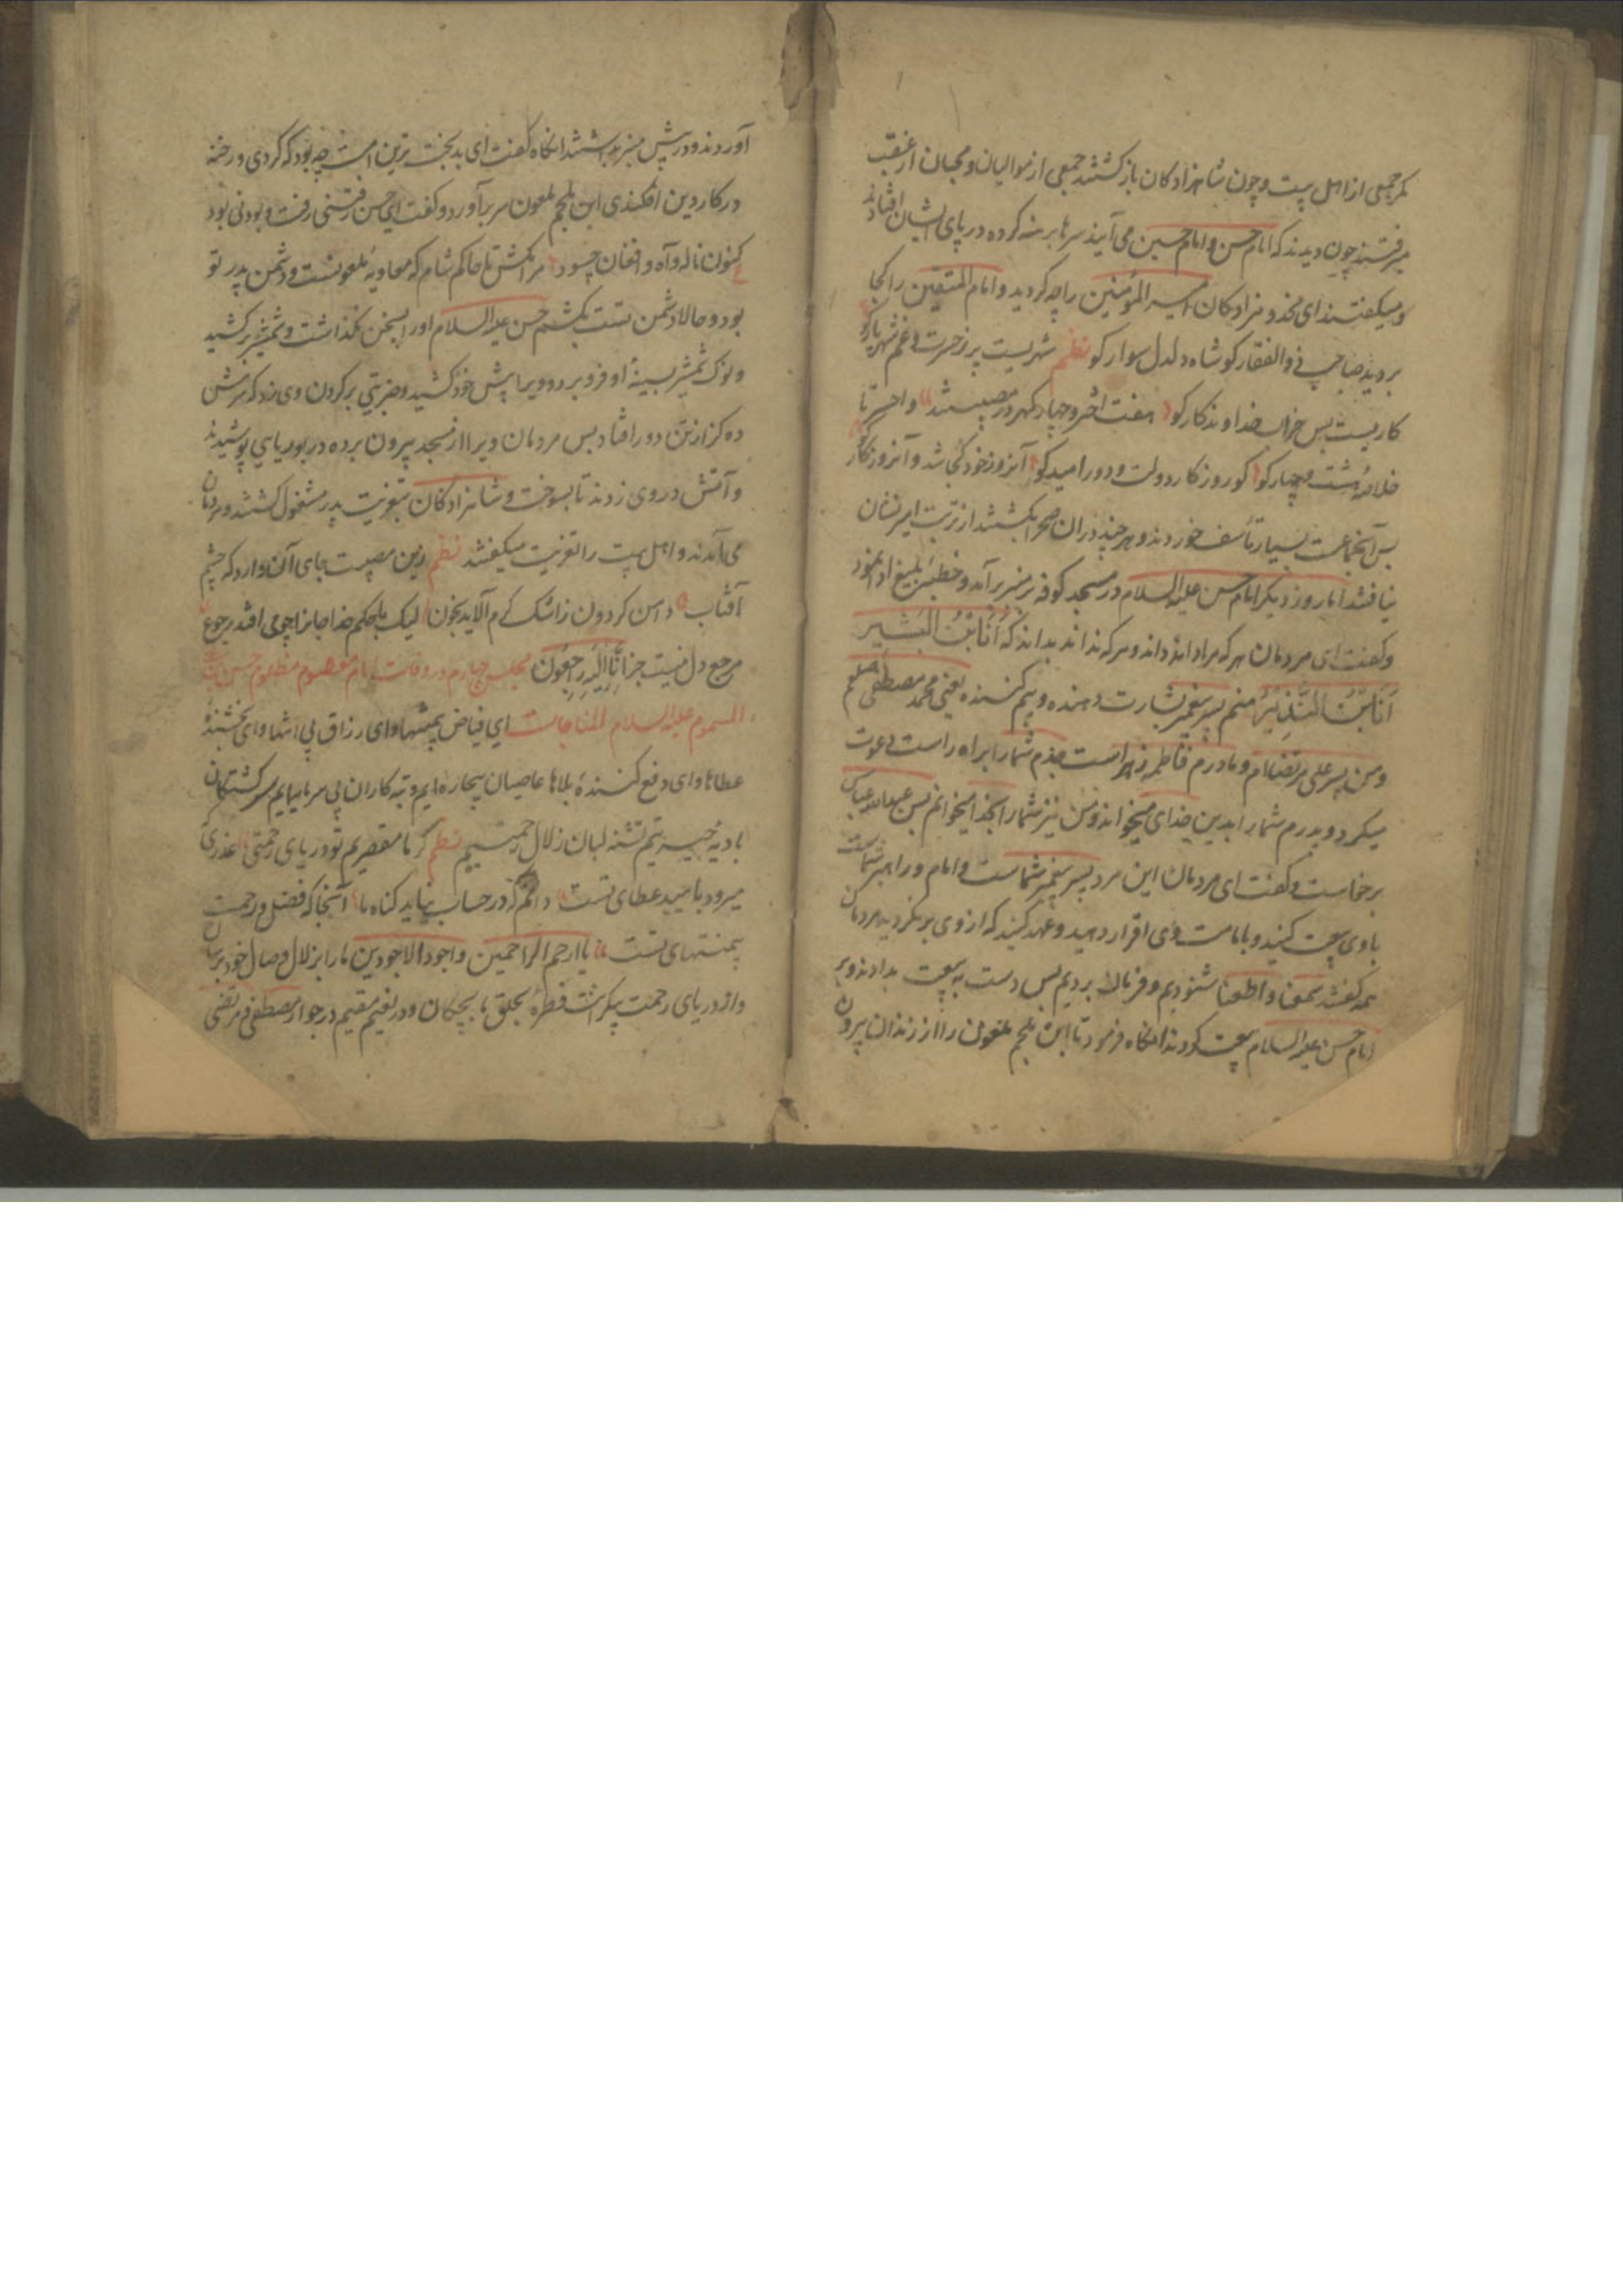 مگر جمعی از اهل بیت و چون شاهزادگان باز گشتند جمعی از موالیان و محبان از عقب
میرفتند چون دیدند که امام حسن و امام حسین می آیند سرها برهنه کرده در پای ایشان افتادند
و میگفتند ای مخدوم زادگان امیر المؤمنین را چه کردید و امام المتقین را کجا
بردید صاحب ذو الفقار کو شاه دلدل سوار کو نظم شهریست پر ز حسرت و غم شهریار کو
کاریست بس خراب خداوندگار کو هفت اختر و چهار گهر در مصیبتند وا حسرتا
خلاصهٔ هشت و چهار کو کو روزگار دولت و دور امید کو آنروز خود کجا شد و آنروزگار کو
پس آنجماعت بسیار تأسف خوردند و هر چند در آن صحرا بگشتند از تربت امیر نشان
نیافتند اما روز دیگر امام حسن علیه السلام در مسجد کوفه بر منبر بر آمد و خطبهٔ بلیغ ادا نمود
و گفت ای مردمان هر که مرا داند داند و هر که نداند بداند که اَنَا ابْنُ الْبَشیر
اَنَا ابْنُ النَّذِیْر منم پسر پیغمبر بشارت دهنده و بیم کننده یعنی محمد مصطفی صلعم
و من پسر علی مرتضی ام و مادرم فاطمه زهراست جدم شما را براه راست دعوت
میکرد و پدرم شما را بدین خدای میخواند و من نیز شما را بخدا میخوانم پس عبد الله عباس
برخاست و گفت ای مردمان این مرد پسر پیغمبر شماست و امام و راهبر شماست
با وی بیعت کنید و بامامت وی اقرار دهید و عهد کنید که از وی برنگردید مردمان
همه گفتند سمعنا و اطعنا شنودیم و فرمان بردیم پس دست به بیعت بدادند و بر
امام حسن علیه السلام بیعت کردند آنگاه فرمود تا ابن ملجم ملعون را از زندان بیرون
آوردند و در پیش منبر بداشتند آنگاه گفت ای بدبخت ترین امت چه بود که کردی و رخنه
در کار دین افکندی ابن ملجم ملعون سر بر آورد و گفت ای حسن رفتنی رفت و بودنی بود
کنون ناله و آه و افغان چسود مرا مکش تا حاکم شام که معاویه ملعونست و دشمن پدر تو
بود و حالا دشمن تست بکشم حسن علیه السلام او را بسخن نگذاشت و شمشیر برکشید
و نوک شمشیر بسینهٔ او فرو برد و ویرا پیش خود کشید و ضربتی بر گردن وی زد که سرش
ده گز از تن دور افتاد پس مردمان ویرا از مسجد بیرون برده در بوریایی پوشیدند
و آتش در وی زدند تا بسوخت و شاهزادگان بتعزیت پدر مشغول گشتند و مردمان
می آمدند و اهل بیت را تعزیت میگفتند نظم زین مصیبت جای آن دارد که چشم
آفتاب دامن گردون ز اشک گرم آلاید بخون لیک با حکم خدا جانرا چو می افتد رجوع
مرجع دل نیست جز اِنَّا اِلَیْهِ رَاجِعُونَ مجلس چهارم در وفات امام معصوم مظلوم حسن
المسموم علیه السلام المناجات ای فیاض بیمنتها و ای رزاق بی انتها و ای بخشندهٔ
عطاها و ای دفع کنندهٔ بلاها عاصیان بیچاره ایم و تبه کاران بی سرمایه ایم سرگشتگان
بادیهٔ حیرتیم تشنه لبان زلال رحمتیم نظم گر ما مقصریم تو دریای رحمتی عذری
میرود بامید عطای تست دانم که در حساب نیاید گناه ما آنجا که فضل و رحمت
بیمنتهای تست یا ارحم الراحمین و اجود الاجودین ما را بزلال وصال خود برسان
و از دریای رحمت بیکرانت قطرهٔ بحلق ما بچکان و در نعیم مقیم در جوار مصطفی و مرتضی